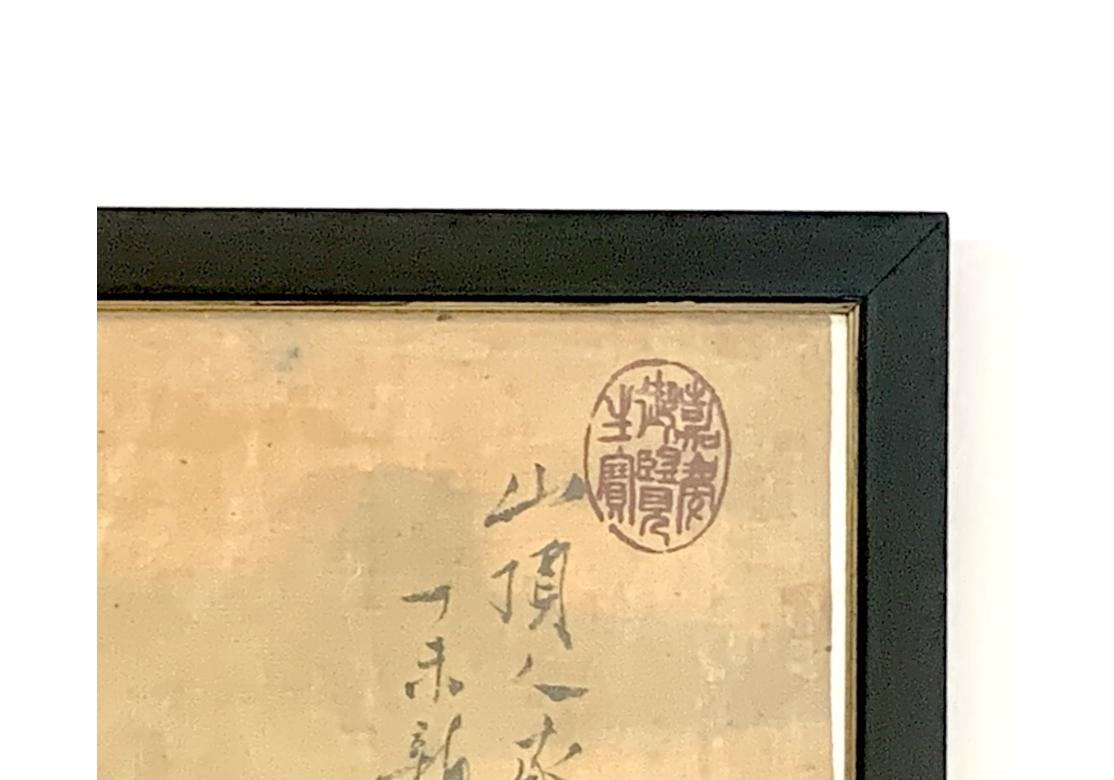 嘉慶
御覽
之寶
山頂人家
丁未新